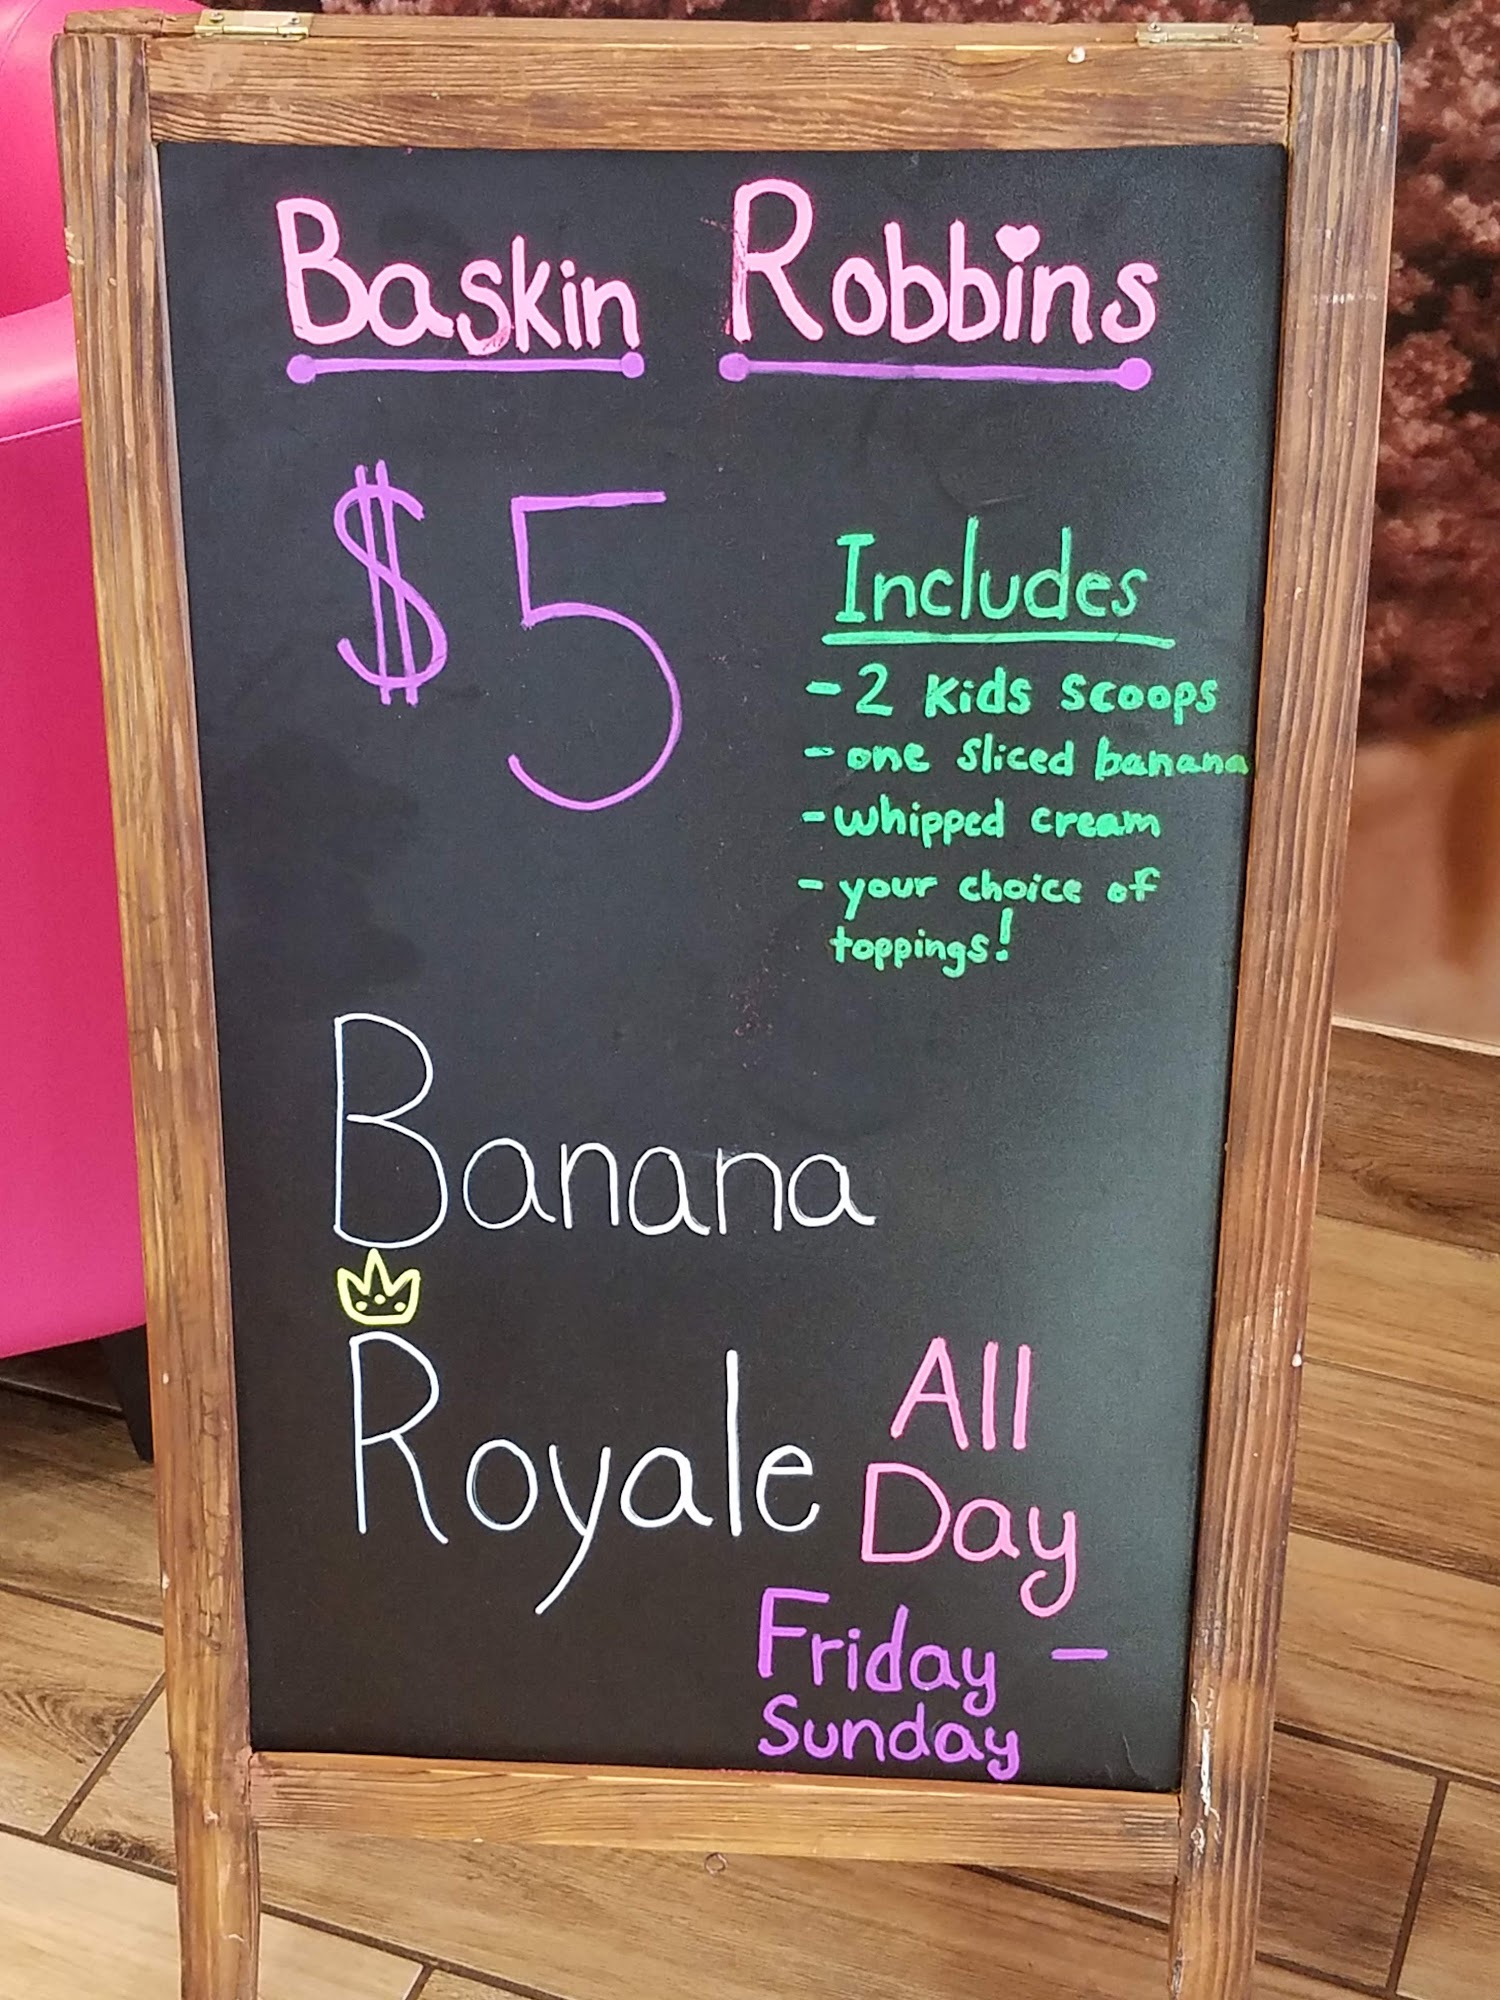 Baskin Robbins
$5
Includes
- 2 Kids Scoops
- one sliced banana
- whipped cream
- your choice of
toppings!
Banana
Royale
All
Day
Friday -
Sunday